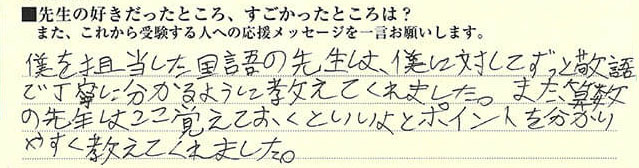 ■先生の好きだったところ、すごかったところは？
また、これから受験する人への応援メッセージを一言お願いします。
僕を担当した国語の先生は、僕に対してずっと敬語
で丁寧に分かるように教えてくれました。また、算数
の先生はここ覚えておくといいよとポイントを分かり
やすく教えてくれました。